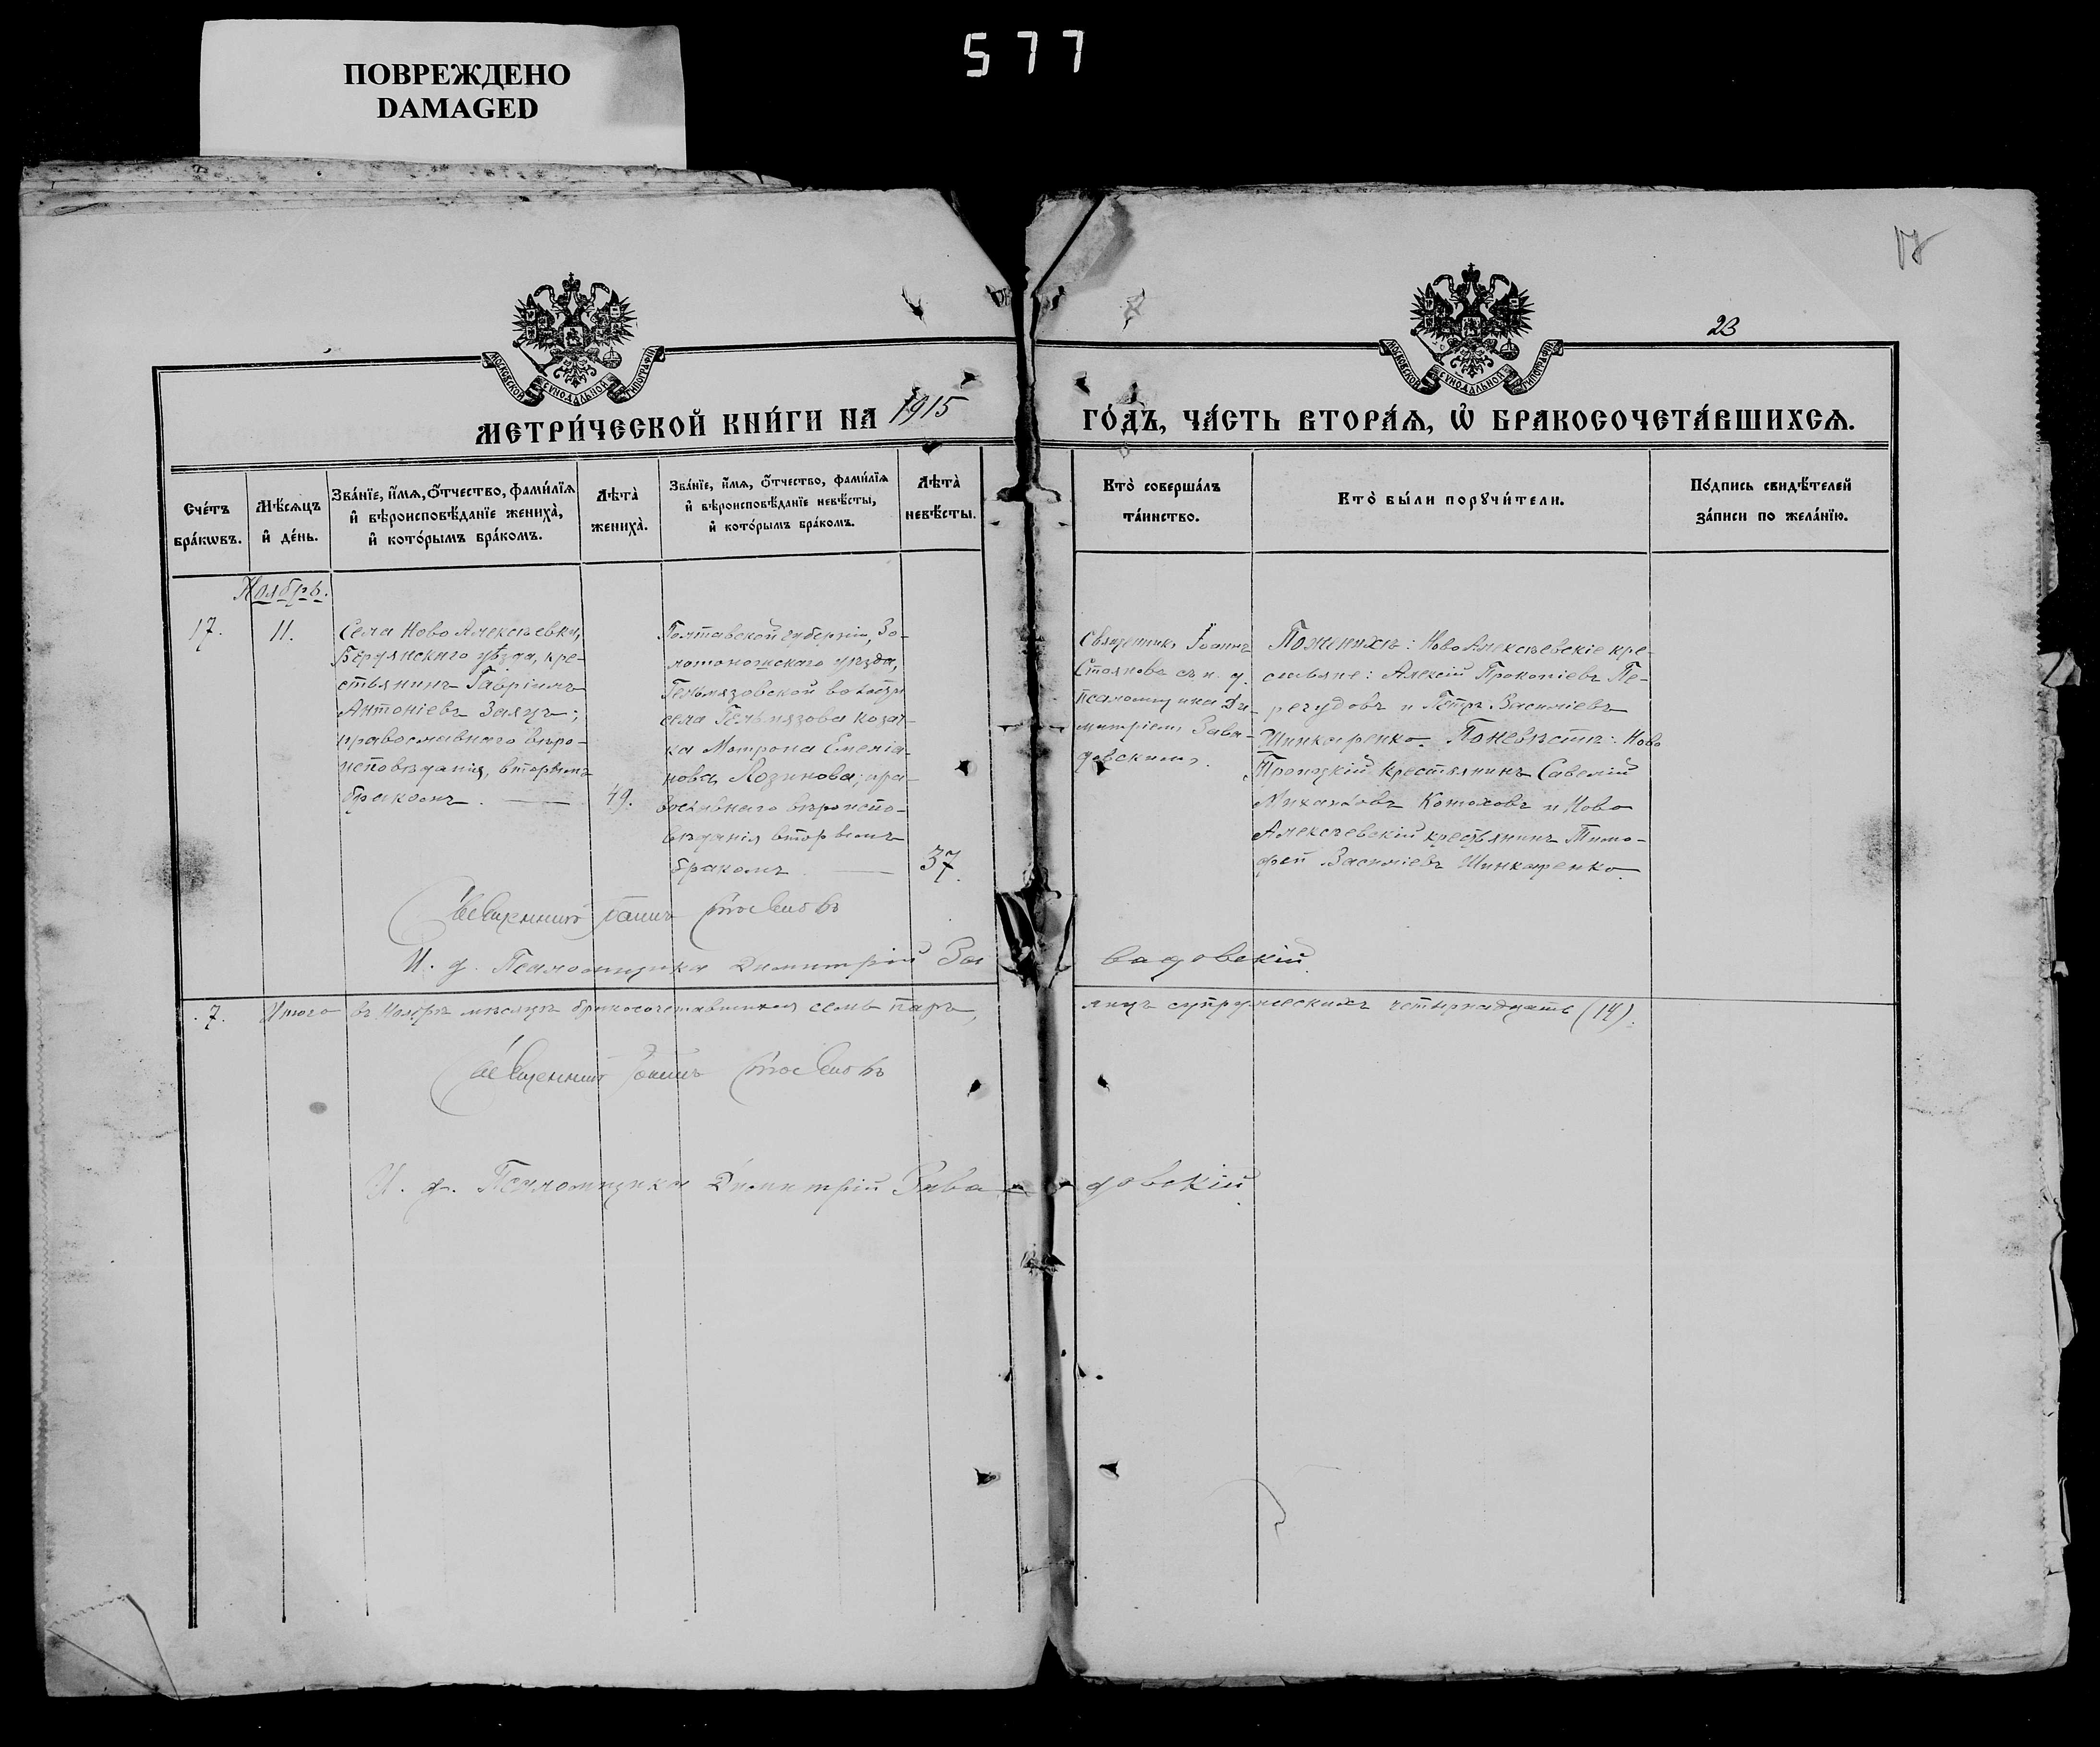 ПОВРЕЖДЕНО
DAMAGED
577
23
МОСКОВСКОЙ СѴНОДАЛЬНОЙ ТИПОГРАФІИ
МОСКОВСКОЙ СѴНОДАЛЬНОЙ ТИПОГРАФІИ
МЕТРИ́ЧЕСКОЙ КНИ́ГИ НА 1915 ГО́ДЪ, ЧА́СТЬ ВТОРА́Ѧ, Ѡ҆ БРАКОСОЧЕТА́ВШИХСѦ.
Сче́тъ бра́кѡвъ.
Мѣ́сѧцъ и҆ де́нь.
Зва́нїе, и҆́мѧ, о҆́тчество, фами́лїѧ и҆ вѣроисповѣ́данїе жениха̀, и҆ кото́рымъ бра́комъ.
Лѣта̀ жениха̀.
Зва́нїе, и҆́мѧ, о҆́тчество, фами́лїѧ и҆ вѣроисповѣ́данїе невѣ́сты, и҆ кото́рымъ бра́комъ.
Лѣта̀ невѣ́сты.
Кто̀ соверша́лъ та́инство.
Кто̀ бы́ли порꙋчи́тели.
По́дпись свидѣ́телей за́писи по жела́нїю.
Ноябрь.
17.
11.
Села Ново Алексѣевки,
Бердянскаго уѣзда, кре-
стьянинъ Гавріилъ
Антоніевъ Заяцъ;
православнаго вѣро-
исповѣданія, вторымъ
бракомъ.
49.
Полтавской губерніи, Зо-
лотоношскаго уѣзда,
Гельмязовской волости
села Гельмязова козач-
ка Матрона Емеліа-
нова Лозинова; пра-
вославнаго вѣроиспо-
вѣданія вторымъ
бракомъ
37.
Священникъ Іоаннъ
Стояновъ съ и. д.
псаломщика Ди-
митріемъ Зава-
довскимъ.
По женихѣ: Ново Алексѣевскіе кре-
стьяне: Алексій Прокопіевъ Пе-
регудовъ и Петръ Василіевъ
Шинкаренко. По невѣстѣ: Ново
Троицкій крестьянинъ Савелій
Михайловъ Котоховъ и Ново
Алексѣевскій крестьянинъ Тимо-
фей Василіевъ Шинкаренко.
Священникъ Іоаннъ Стояновъ
И. д. Псаломщика Димитрій Завадовскій.
7. Итого въ Ноябрѣ мѣсяцѣ бракосочетавшихся семь паръ, лицъ супружескихъ четырнадцать (14).
Священникъ Іоаннъ Стояновъ
И. д. Псаломщика Димитрій Завадовскій.